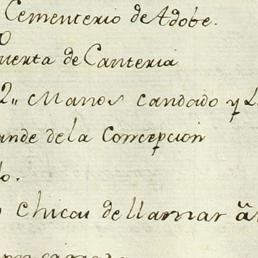 Cementerio de Adobe.
uerta de Canteria
2,, Manos Candado y L
ande de la Concepcion
lo.
chicas de llamar â